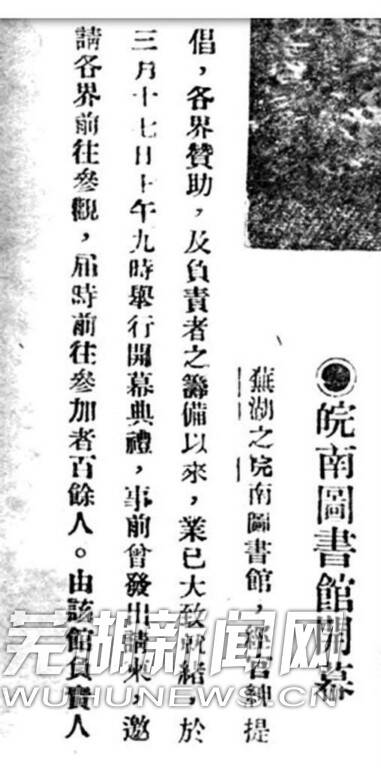 皖南圖書館開幕
蕪湖之皖南圖書館，經官紳提
倡，各界贊助，及負責者之籌備以來，業已大致就緒，於
三月十七日上午九時舉行開幕典禮，事前曾發出請柬，邀
請各界前往參觀，屆時前往參加者百餘人。由該館負責人
芜湖新闻网
WUHUNEWS.CN